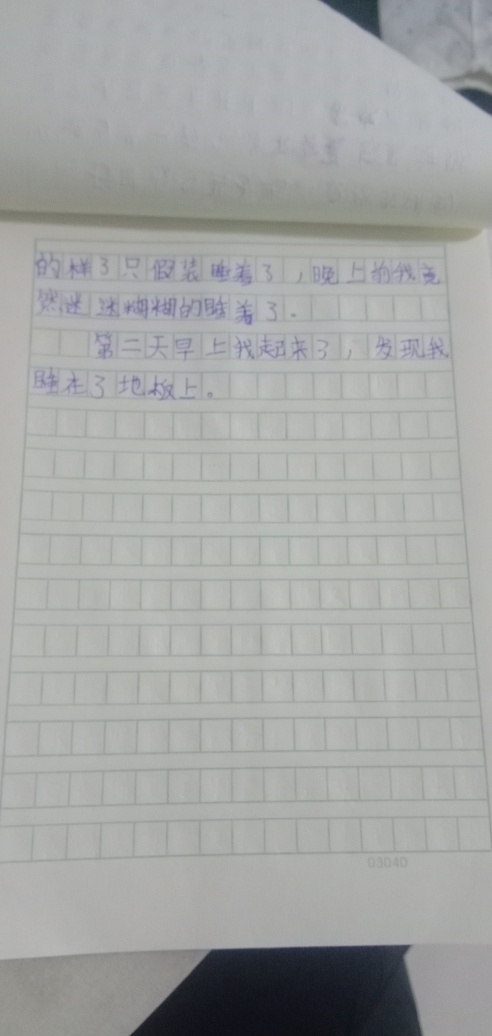 的样了只假装睡着了，晚上的我竟
然迷迷糊糊的睡着了。
第二天早上我起来了，发现我
睡在了地板上。
03040